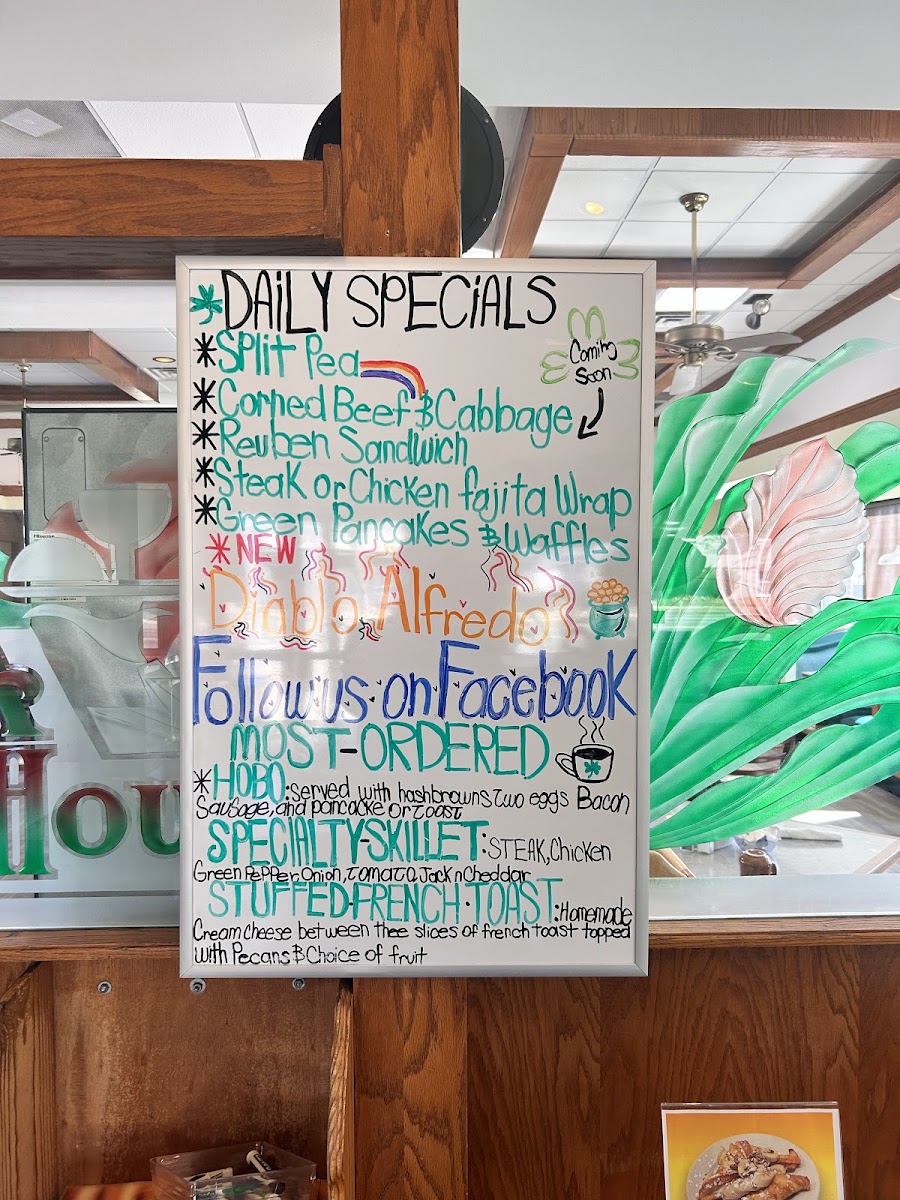 DAiLY SPECiALS
Coming
Soon
*Split Pea
*Corned Beef & Cabbage
*Reuben Sandwich
*Steak or Chicken fajita Wrap
*Green Pancakes & Waffles
*NEW
Diablo Alfredo
Follow us on Facebook
MOST-ORDERED
*HOBO: Served with hashbrowns two eggs Bacon
Sausage, and pancacke or toast
SPECIALTY-SKILLET: STEAK, Chicken
Green Pepper, Onion, Tomato, Jack n Cheddar
STUFFED-FRENCH-TOAST: Homemade
Cream Cheese between thee slices of french toast topped
with Pecans & Choice of fruit
R
Hou